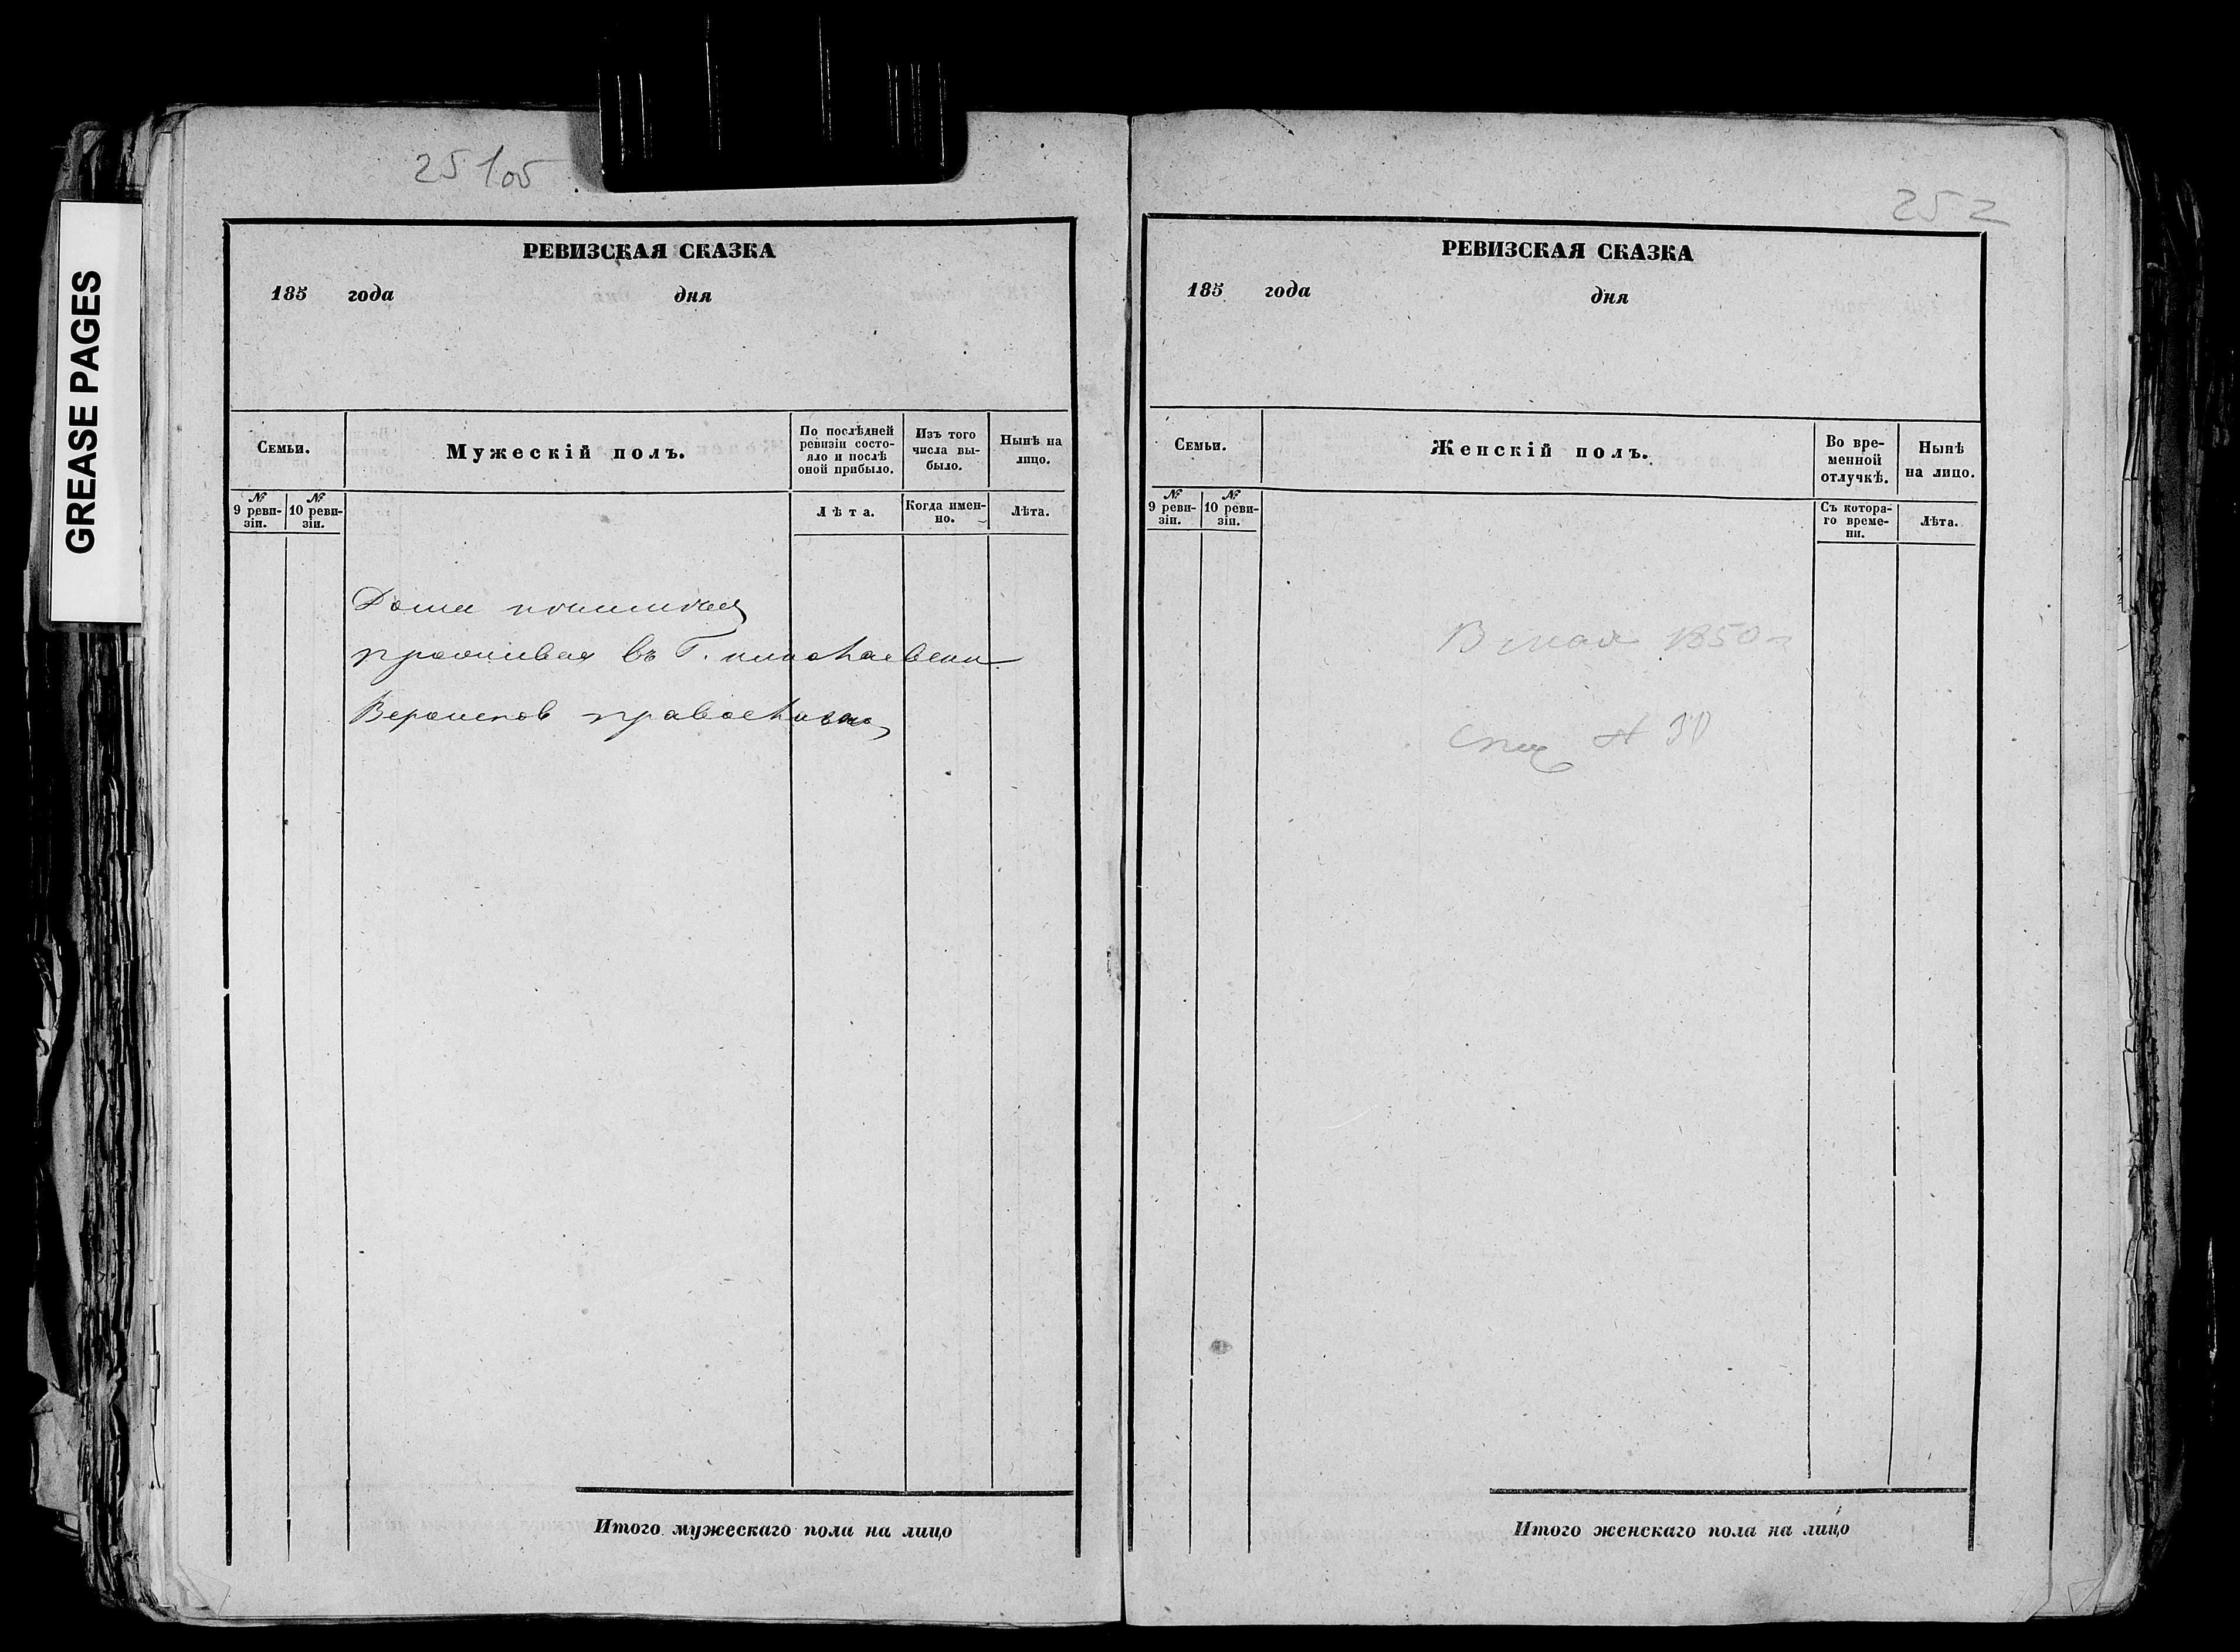 GREASE PAGES
251об
РЕВИЗСКАЯ СКАЗКА
185 года дня
Семьи.
Мужескій полъ.
По послѣдней ревизіи состо-
яло и послѣ
оной прибыло.
Изъ того
числа вы-
было.
Нынѣ на
лицо.
№
9 реви-
зіи.
№
10 реви-
зіи.
Лѣта.
Когда имен-
но.
Лѣта.
въ Г.
Итого мужескаго пола на лицо
252
РЕВИЗСКАЯ СКАЗКА
185 года дня
Семьи.
Женскій полъ.
Во вре-
менной
отлучкѣ.
Нынѣ
на лицо.
№
9 реви-
зіи.
№
10 реви-
зіи.
Съ котора-
го време-
ни.
Лѣта.
В мая 1850 г
Итого женскаго пола на лицо